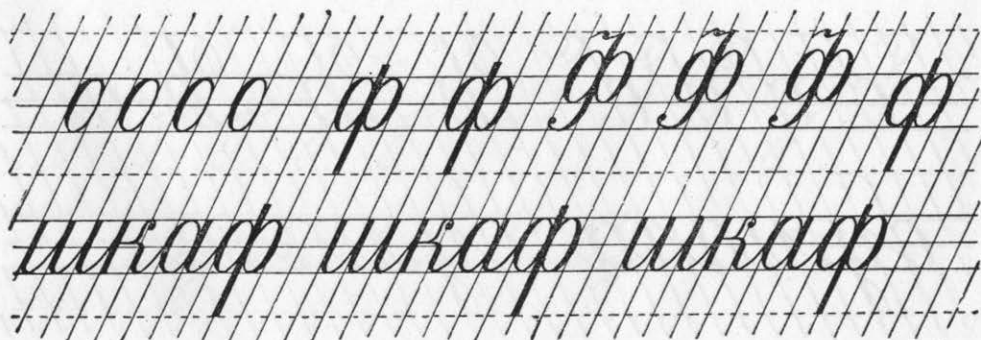 о о о о ф ф Ф Ф Ф ф
шкаф шкаф шкаф